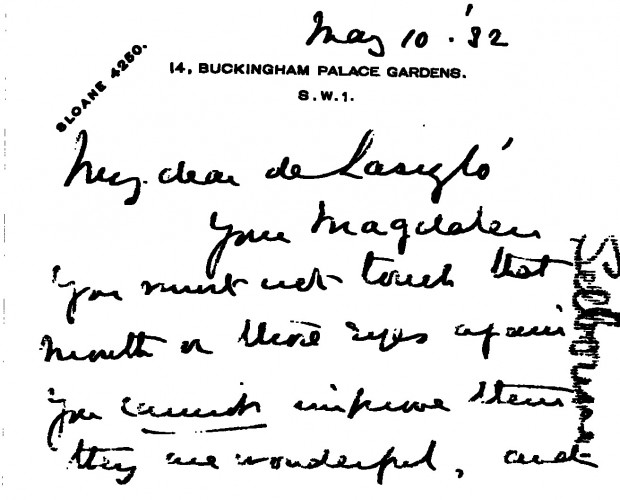 May 10. '32
SLOANE 4250.
14, BUCKINGHAM PALACE GARDENS.
S.W.1.
My dear de László
Your Magdalen
You must not touch that
mouth or those eyes again
You cannot improve them
they are wonderful, and
Selborne